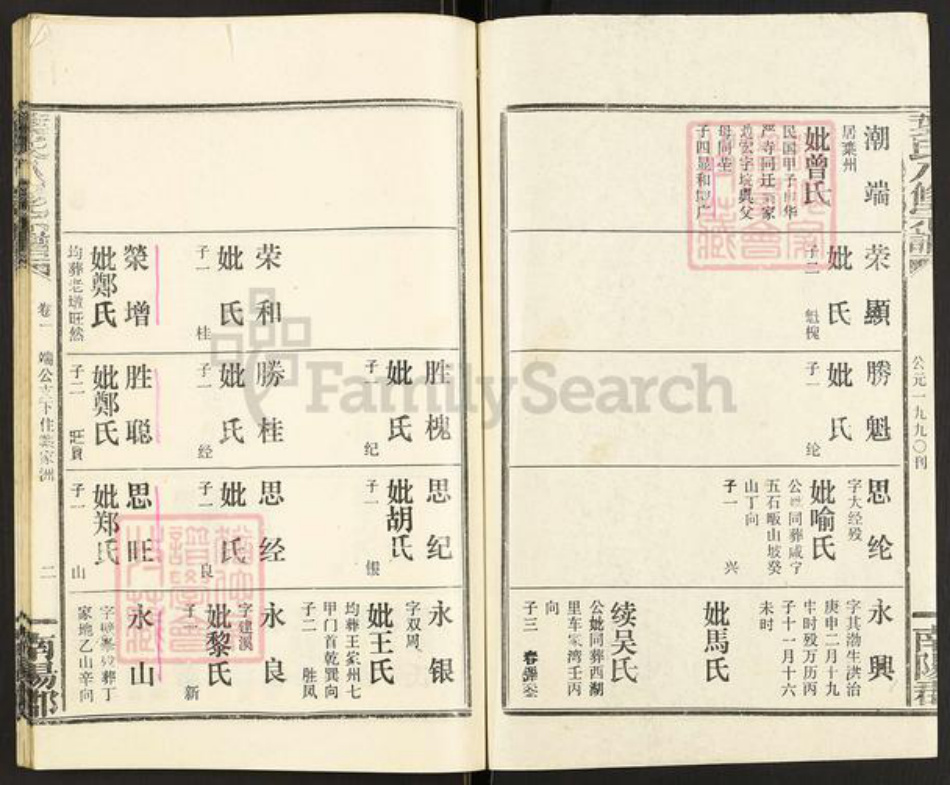 潮端
居葉州
妣曾氏
民国甲子由华
严寺同迁葉家
子四显和
荣顯
妣氏
子二
魁槐
勝魁
妣氏
子一
纶
思纶
字大经殁
妣喻氏
公妣同葬咸宁
五石畈山坡癸
山丁向
子一
兴
永興
字其渤生洪治
庚申二月十九
牛时殁万历丙
子十一月十六
未时
妣馬氏
续吴氏
公妣同葬西湖
里车家湾壬丙
向
子三
公元一九九〇刊
南陽郡
荣和
妣氏
子一
桂
榮增
妣鄭氏
均葬老墩旺然
胜槐
妣氏
子一
纪
勝桂
妣氏
子一
经
胜聪
妣鄭氏
子二
思纪
妣胡氏
子一
银
思经
妣氏
子一
良
思旺
妣郑氏
子一
山
永银
字双周
妣王氏
均葬王家州七
甲门首乾巽向
子二
胜凤
永良
字建溪
妣黎氏
新
永山
家地乙山辛向
卷一
端公支下住葉家洲
二
南陽郡
FamilySearch